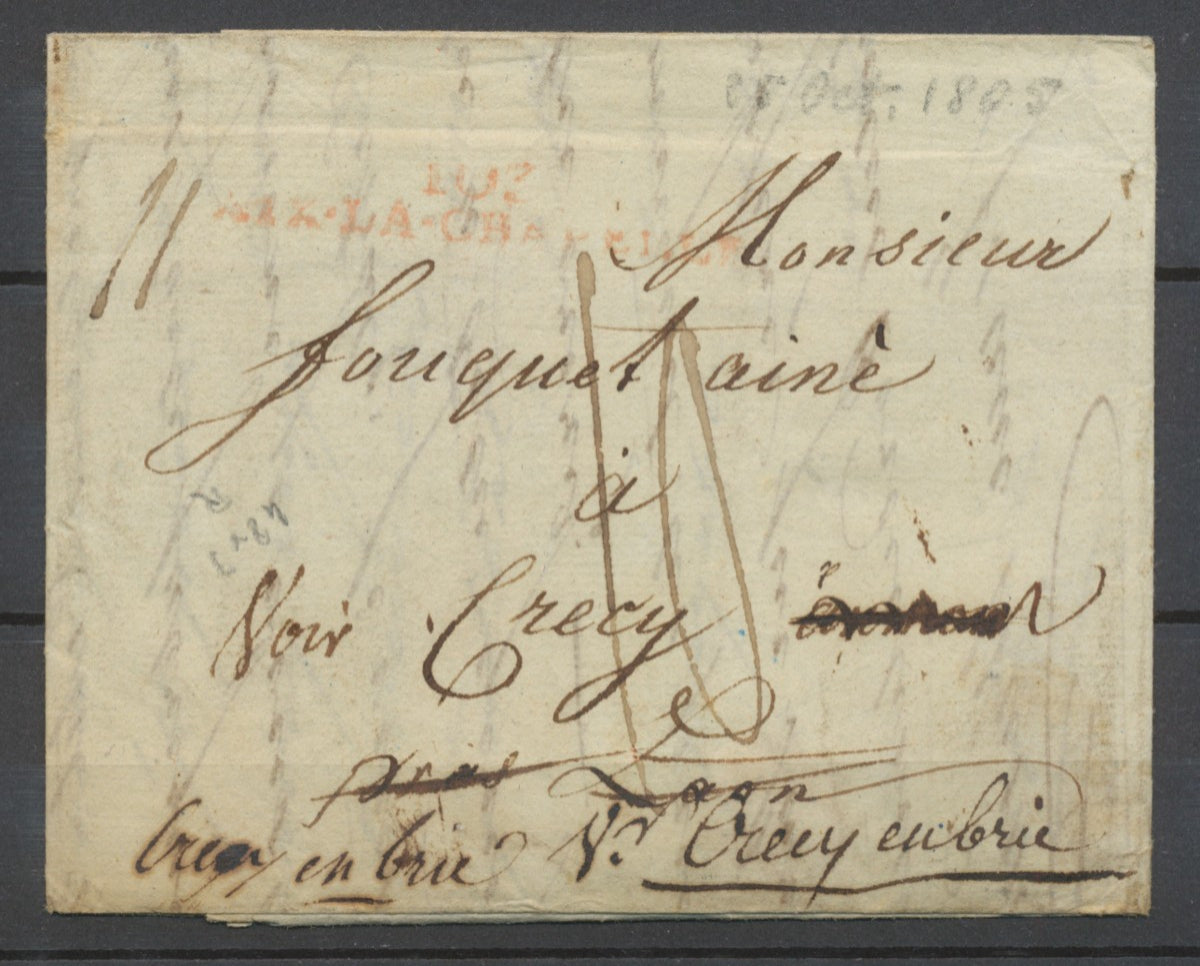 Oct. 1805
103
AIX-LA-CHAPELLE
11
Monsieur
fouquet ainè
à
Voir Crecy
près Laon
Crecy en brie Vr. Crecy en brie